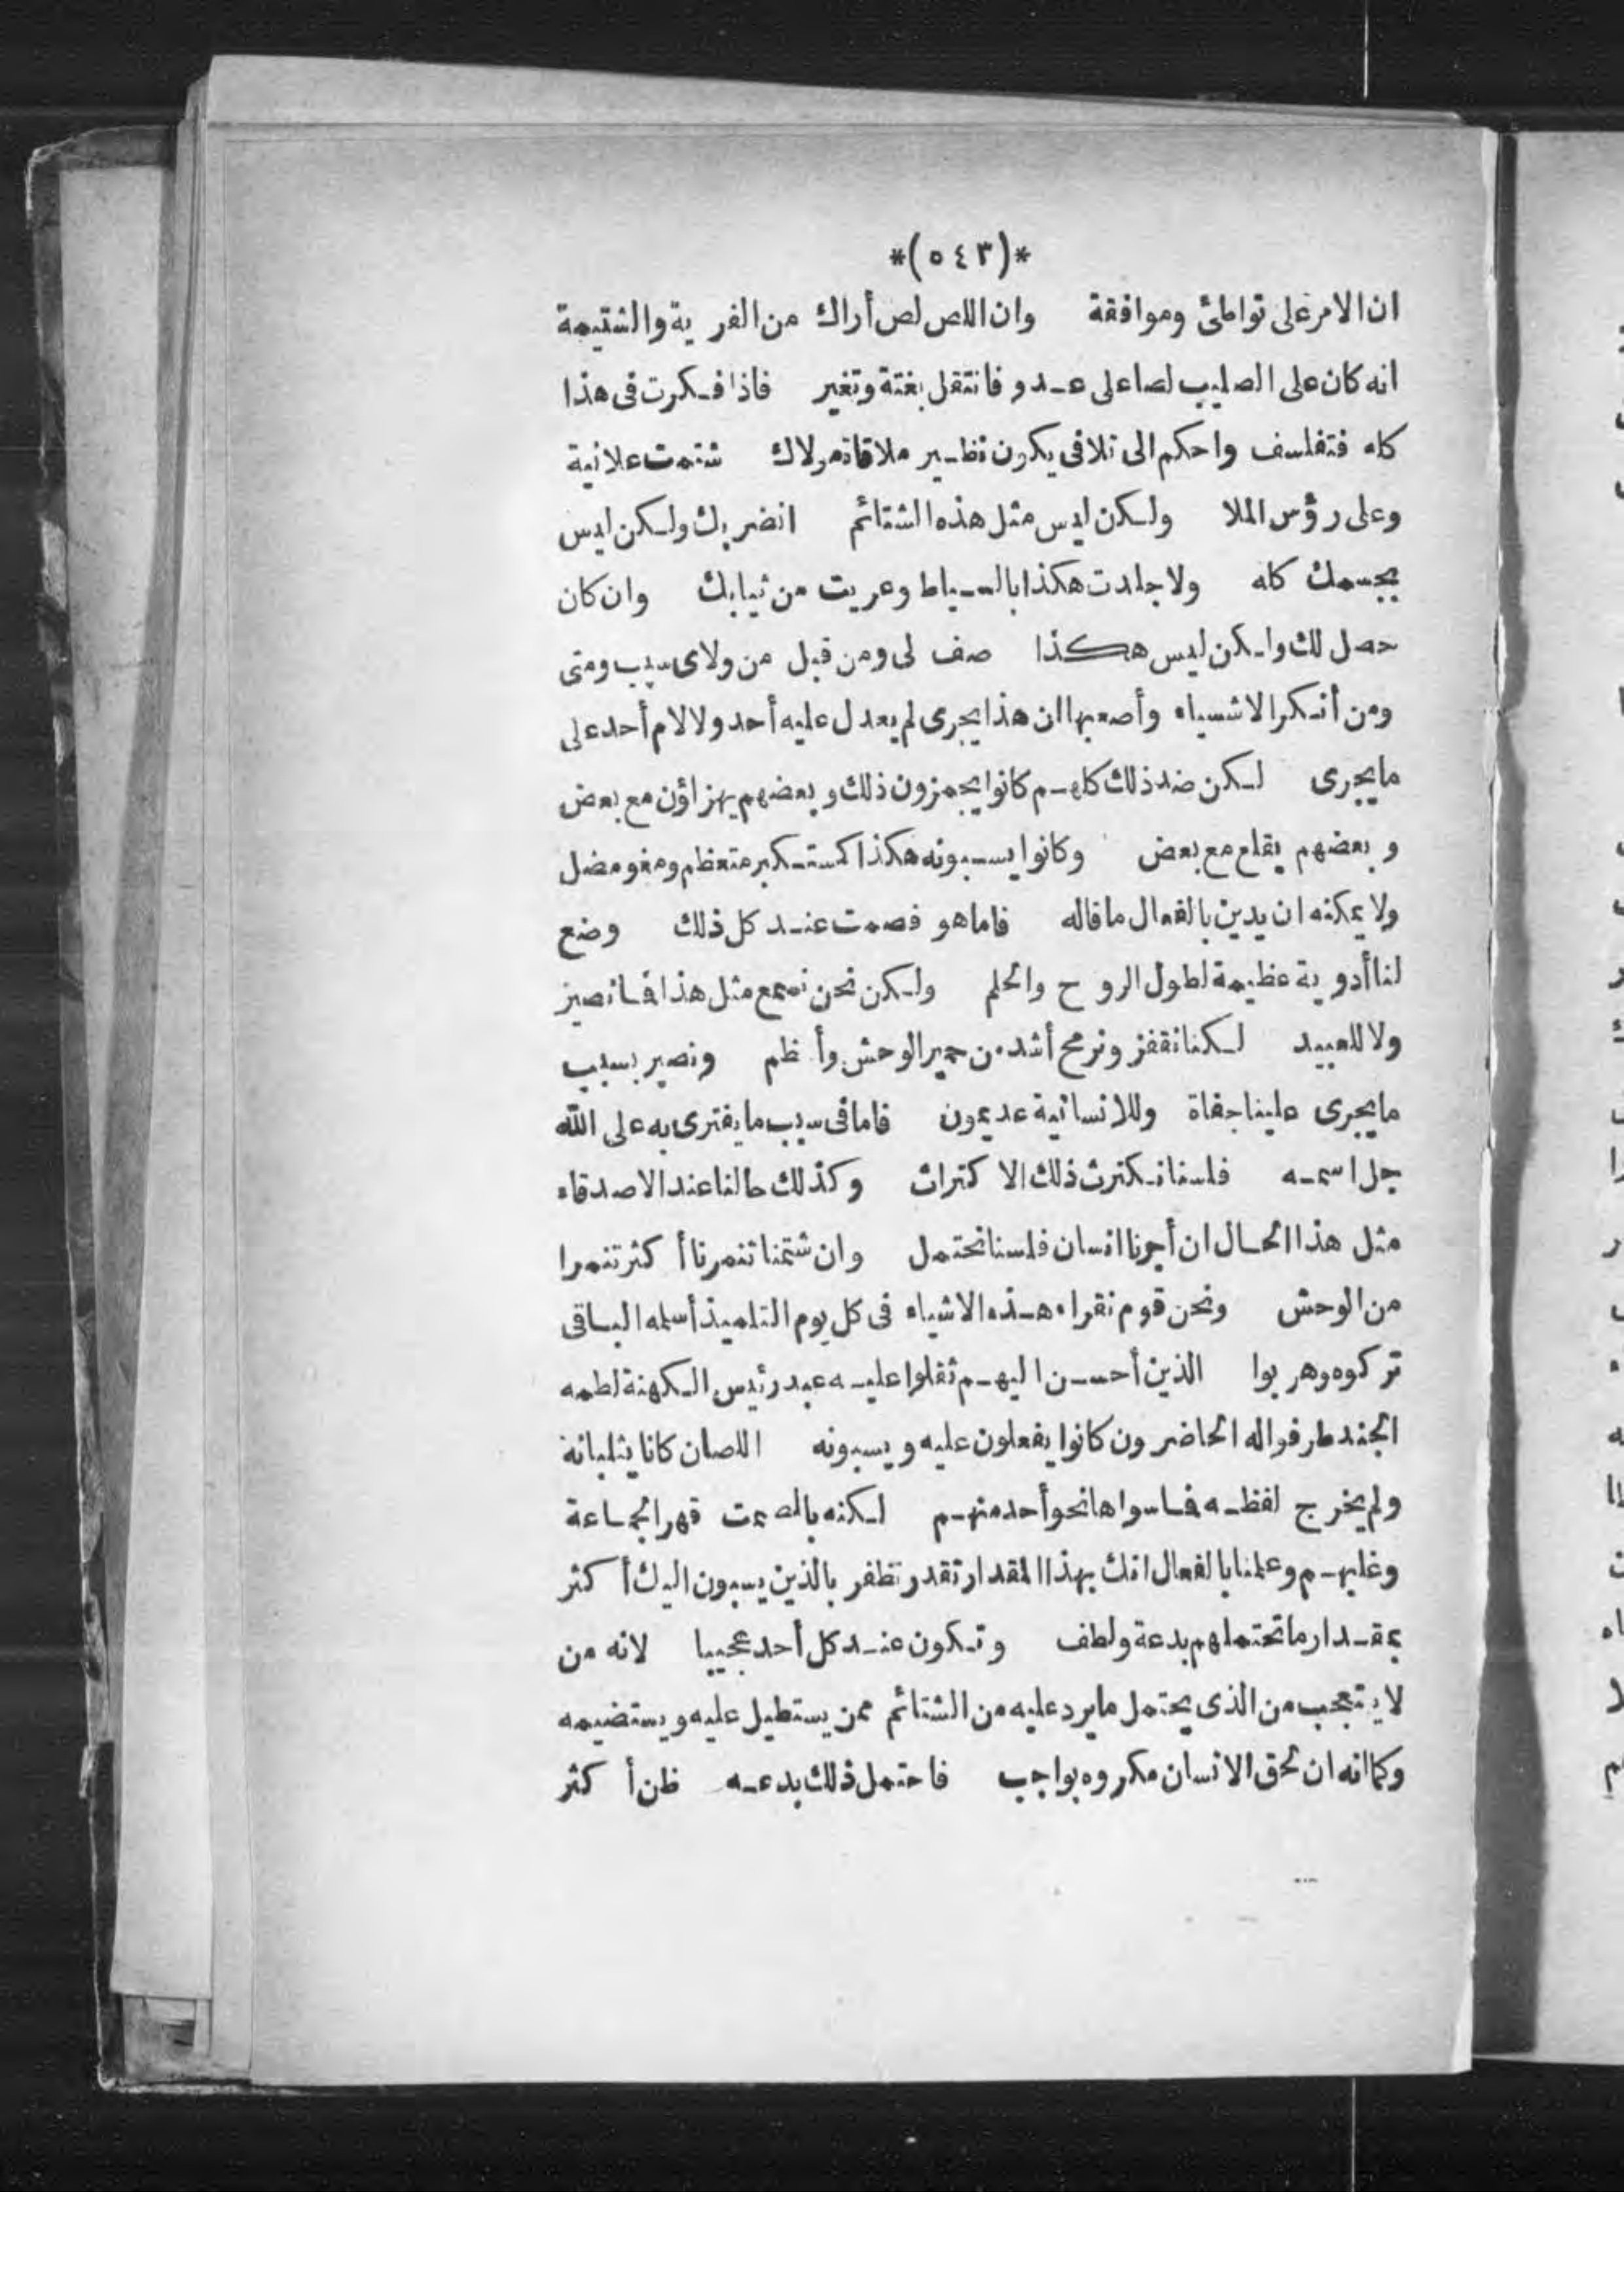 *(٥٤٣)*
ان الامر على تواطئ وموافقة وان اللص لص أراك من الفرية والشتيمة
انه كان على الصليب لصا على عدو فانتقل بغتة وتغير فاذا فكرت فى هذا
كله فتفلسف واحكم الى تلافى يكون نظير ملاقاة مولاك شتمت علانية
وعلى رؤس الملا ولكن ليس مثل هذه الشتائم انضر بك ولكن ليس
بجسمك كله ولا جلدت هكذا بالسياط وعريت من ثيابك وان كان
حصل لك ولكن ليس هكذا صف لى ومن قبل من ولاى سبب ومتى
ومن أنكر الاشياء وأصعبها ان هذا يجرى لم يعدل عليه أحد ولا لام أحد على
ما يجرى لكن ضد ذلك كلهم كانوا يجمزون ذلك وبعضهم يهزاؤن مع بعض
وبعضهم يقلع مع بعض وكانوا يسبونه هكذا كمستكبر متعظم ومغو مضل
ولا يمكنه ان يدين بالفعال ما قاله فاما هو فصمت عند كل ذلك وضع
لنا أدوية عظيمة لطول الروح والحلم ولكن نحن نسمع مثل هذا فما نصبر
ولا للعبيد لكنا نقفز ونرمح أشد من حمير الوحش وأ ظم ونصير بسبب
ما يجرى علينا جفاة وللانسانية عديمون فاما فى سبب ما يفترى به على الله
جل اسمه فلسنا نكترث ذلك الاكتراث وكذلك حالنا عند الاصدقاء
مثل هذا الحال ان أجرنا انسان فلسنا نحتمل وان شتمنا تنمرنا أكثر تنمرا
من الوحش ونحن قوم نقراء هذه الاشياء فى كل يوم التلميذ أسلمه الباقى
تركوه وهربوا الذين أحسن اليهم ثقلوا عليه عبد رئيس الكهنة لطمه
الجند طرفوا له الحاضرون كانوا يفعلون عليه ويسبونه اللصان كانا يثلبانه
ولم يخرج لفظه فما سواها نحو أحد منهم لكنه بالصمت قهر الجماعة
وغلبهم وعلمنا بالفعال انك بهذا المقدار تقدر تظفر بالذين يسبون اليك أكثر
بمقدار ما تحتملهم بدعة ولطف وتكون عند كل أحد عجيبا لانه من
لا يتعجب من الذى يحتمل ما يرد عليه من الشتائم ممن يستطيل عليه ويستضيمه
وكما انه ان لحق الانسان مكروه بواجب فاحتمل ذلك بدعه ظن أكثر